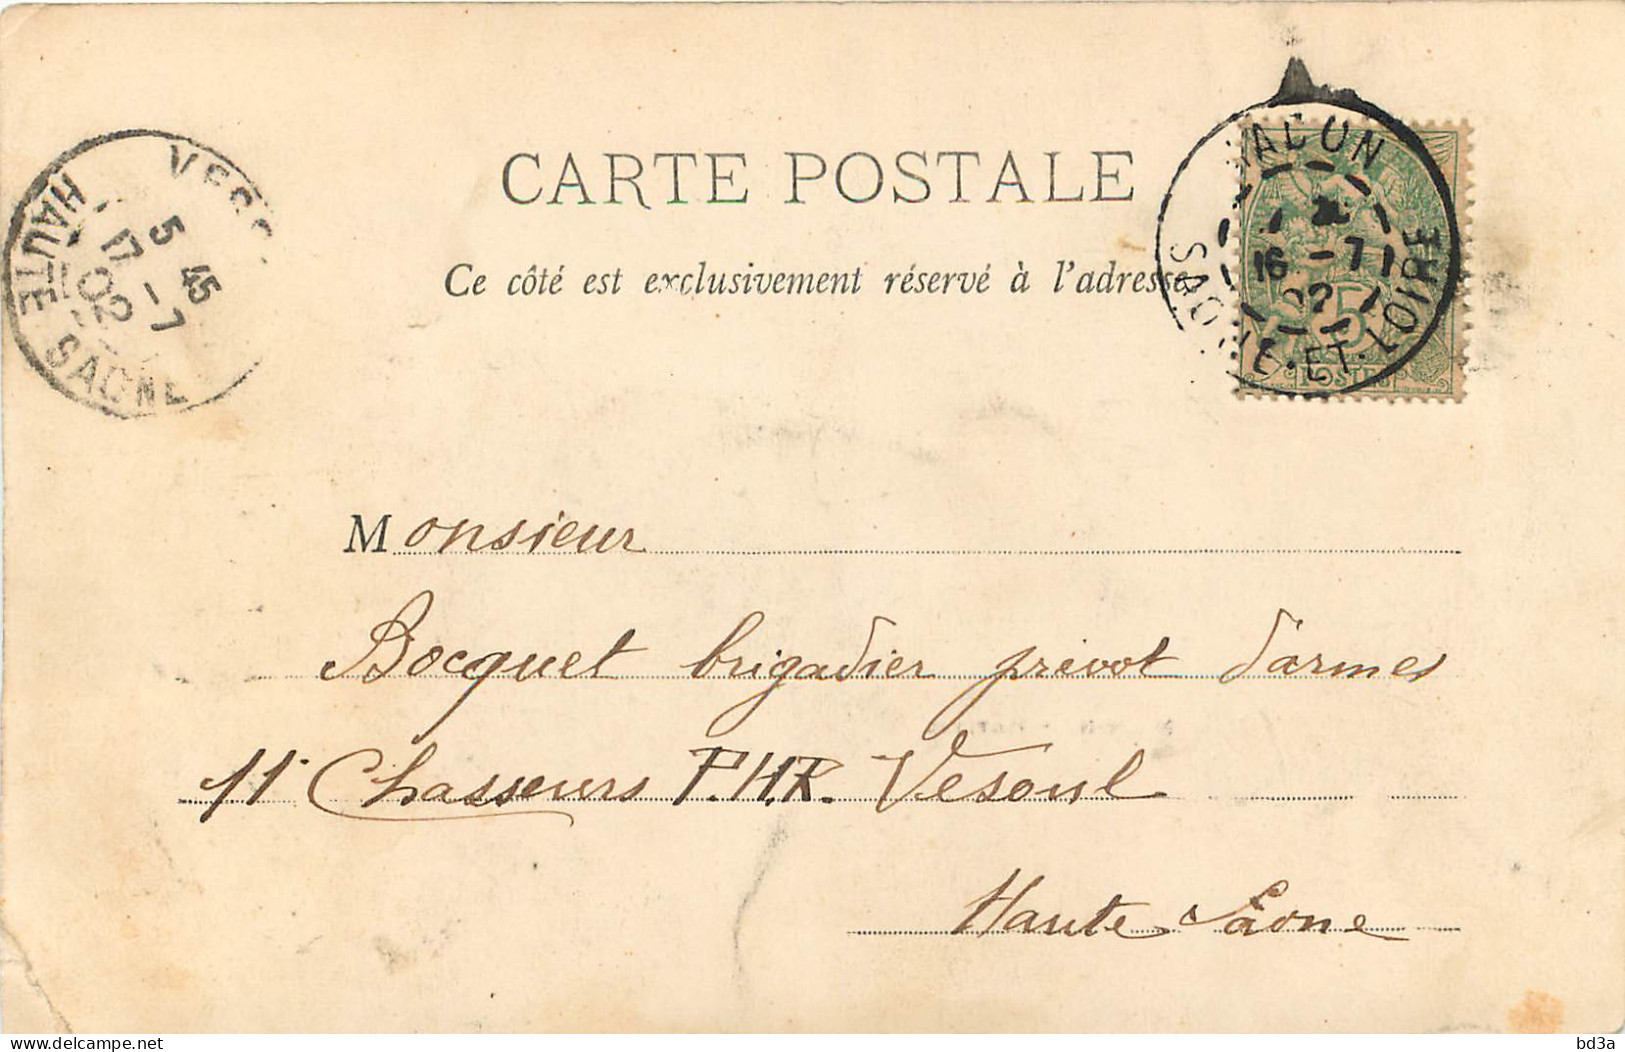 CARTE POSTALE
Ce côté est exclusivement réservé à l'adresse
HAUTE SAONE
5 45
17 - 7
02
MACON
16 - 7
02
SAONE-ET-LOIRE
5
POSTES
Monsieur
Bocquet brigadier prevot d'armes
11e Chasseurs P.H.R. Vesoul
Haute Saone
delcampe.net
bd3a